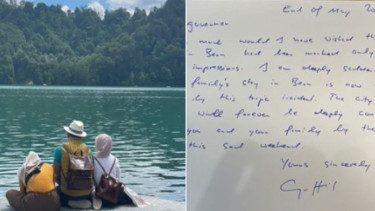 End of May 20
governor
more would I have wished th
in Bern had been marked only
impressions. I am deeply sadden
family's stay in Bern is now
by this tragic incident. The city
will forever be deeply con
you and your family by the
this sad weekend.
Yours sincerely